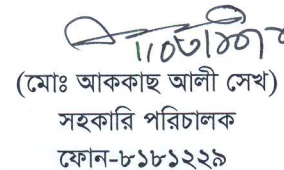 (মোঃ আককাছ আলী সেখ)
সহকারি পরিচালক
ফোন-৮১৮১২২৯